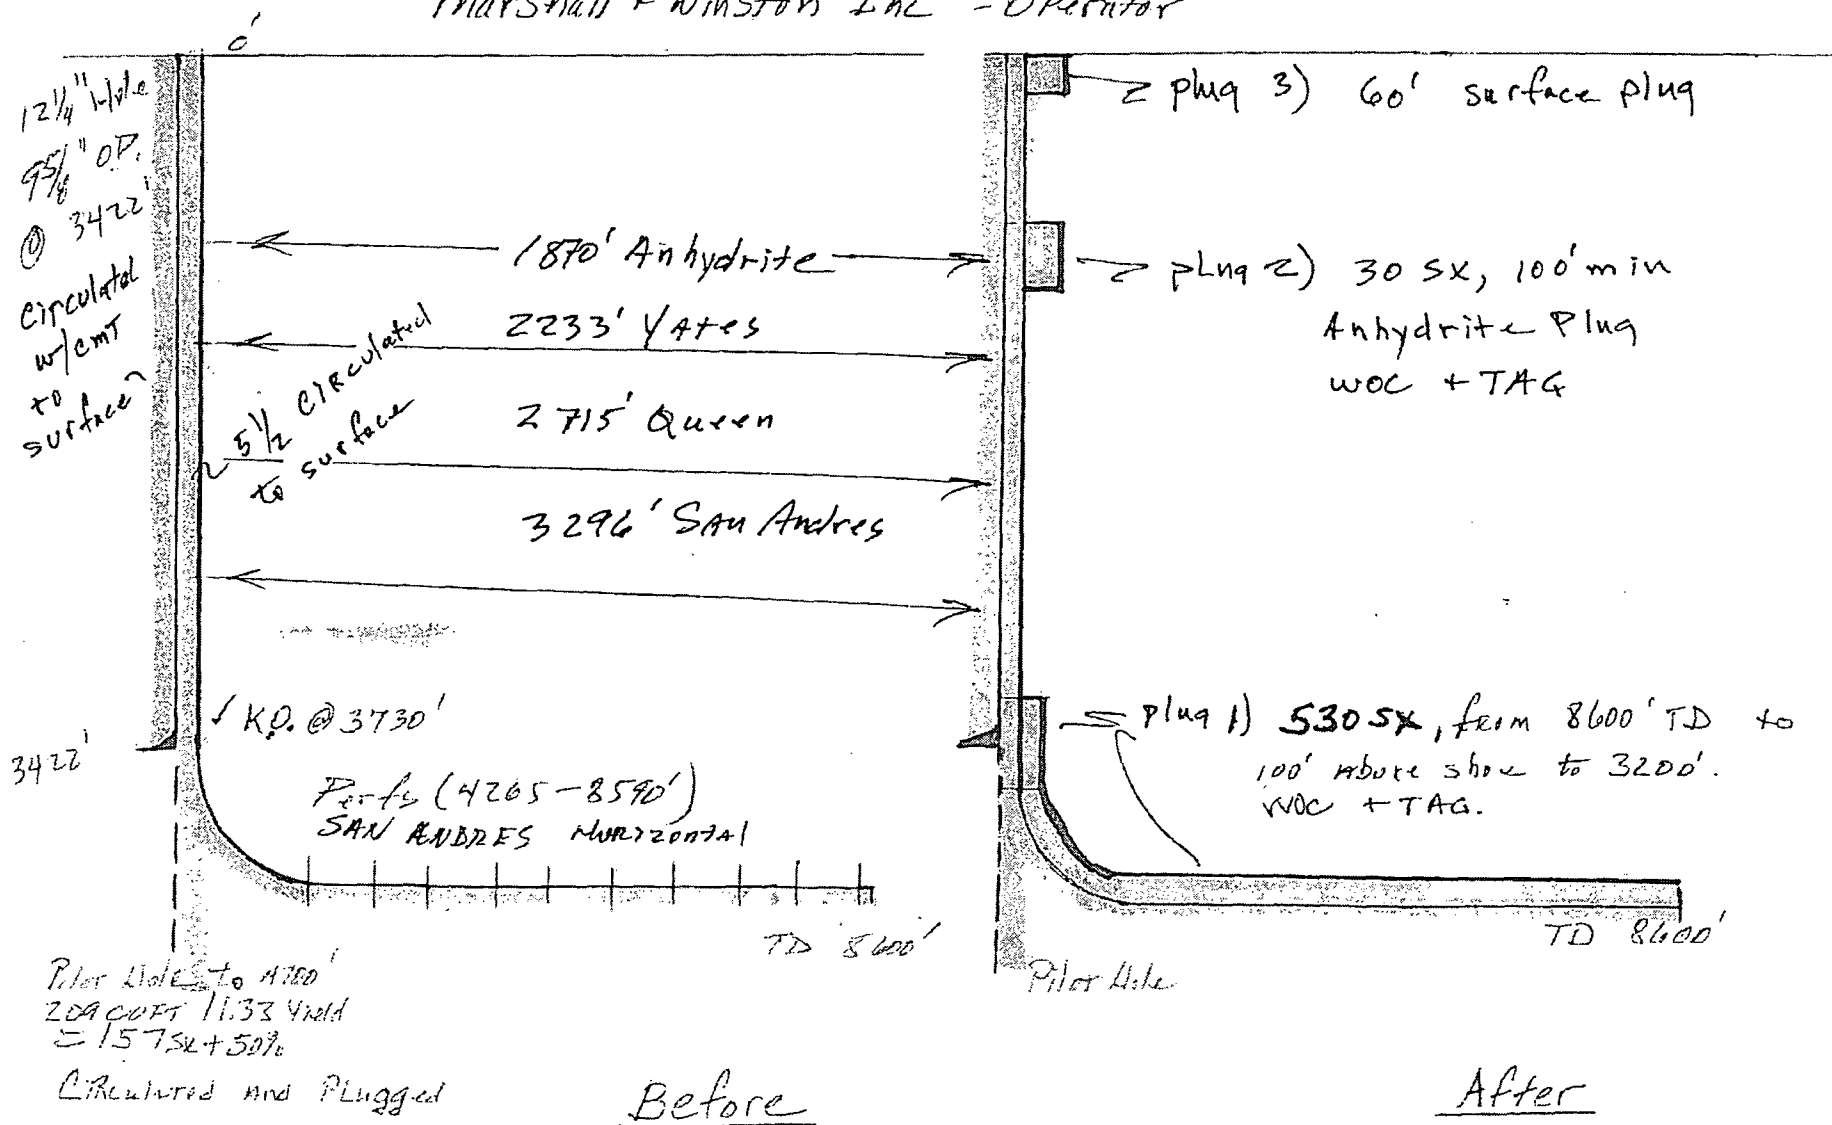 Marshall + Winston Inc - Operator
0'
12 1/4" Hole
9 5/8" O.D.
@ 3422'
Circulated
w/cmT
to
surface
1870' Anhydrite
2233' YAtes
5 1/2 CIRCulated
to surface
2715' Queen
3296' SAn Andres
K.O. @ 3730'
3422'
Perfs (4265-8590')
SAN ANDRES HORIZONTAL
TD 8600'
Pilot Hole to 4700'
209 COFT / 1.33 Yield
= 157 sx + 50%
CIRculated and PLugged
Before
plug 3) 60' surface plug
pLug 2) 30 SX, 100' min
Anhydrite Plug
WOC + TAG
plug 1) 530 SX, from 8600' TD to
100' above shoe to 3200'.
WOC + TAG.
TD 8600'
Pilot Hole
After